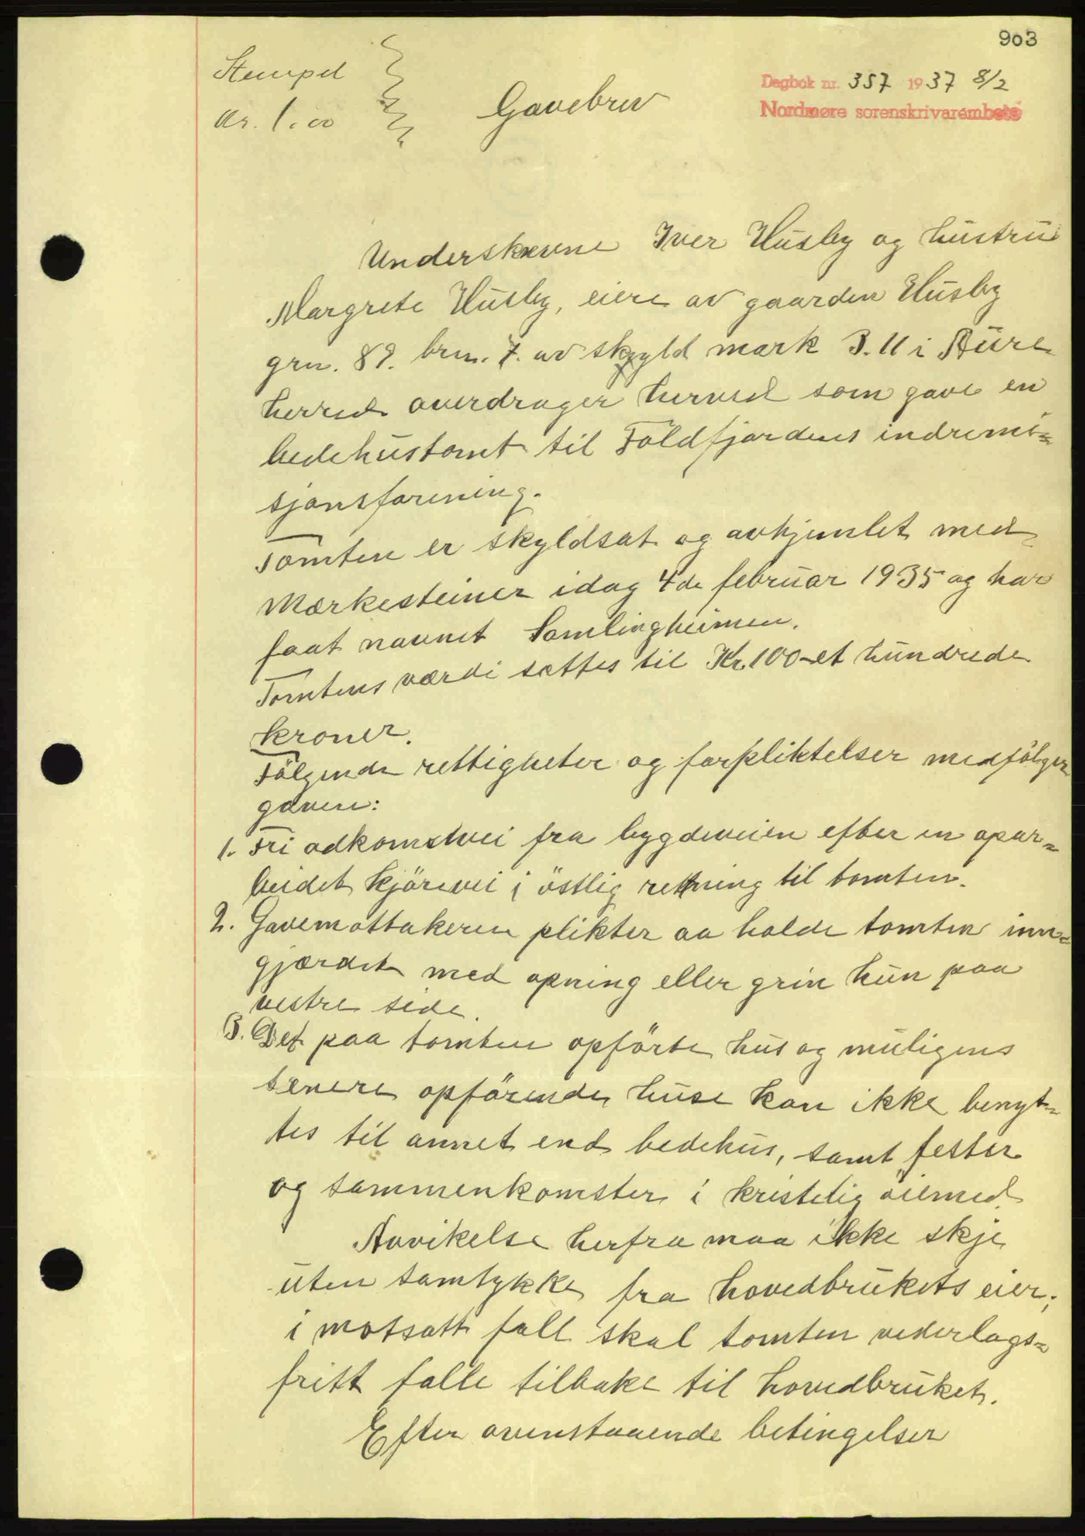 903
Stempel
Kr. 1.00
Gavebrev
Dagbok nr. 357 1937 8/2
Nordmøre sorenskrivarembete
Underskrevne Iver Husby og hustru
Margrete Husby, eiere av gaarden Husby
grn. 89. brn. 7. av skyld mark 3.11 i Aure
herred overdrager herved som gave en
bedehustomt til Foldfjordens indremi=
sjonsforening.
Tomten er skyldsat og avhjemlet med
Mærkesteiner idag 4de februar 1935 og har
faat navnet Samlingheimen.
Tomtens værdi settes til Kr. 100 - et hundrede
kroner.
Følgende rettigheter og forpliktelser medfölger
gaven:
1. Fri adkomstvei fra bygdeveien efter en opar=
beidet kjörevei i östlig retning til tomten.
2. Gavemottakeren plikter aa holde tomten inn=
gjærdet med opning eller grin kun paa
vestre side.
3. Det paa tomten opförte hus og muligens
senere opförende huse kan ikke benyt=
tes til annet end bedehus, samt fester
og sammenkomster i kristelig öiemed.
Avvikelse herfra maa ikke skje
uten samtykke fra hovedbrukets eier;
i motsatt fall skal tomten vederlags=
fritt falle tilbake til hovedbruket.
Efter ovenstaaende betingelser